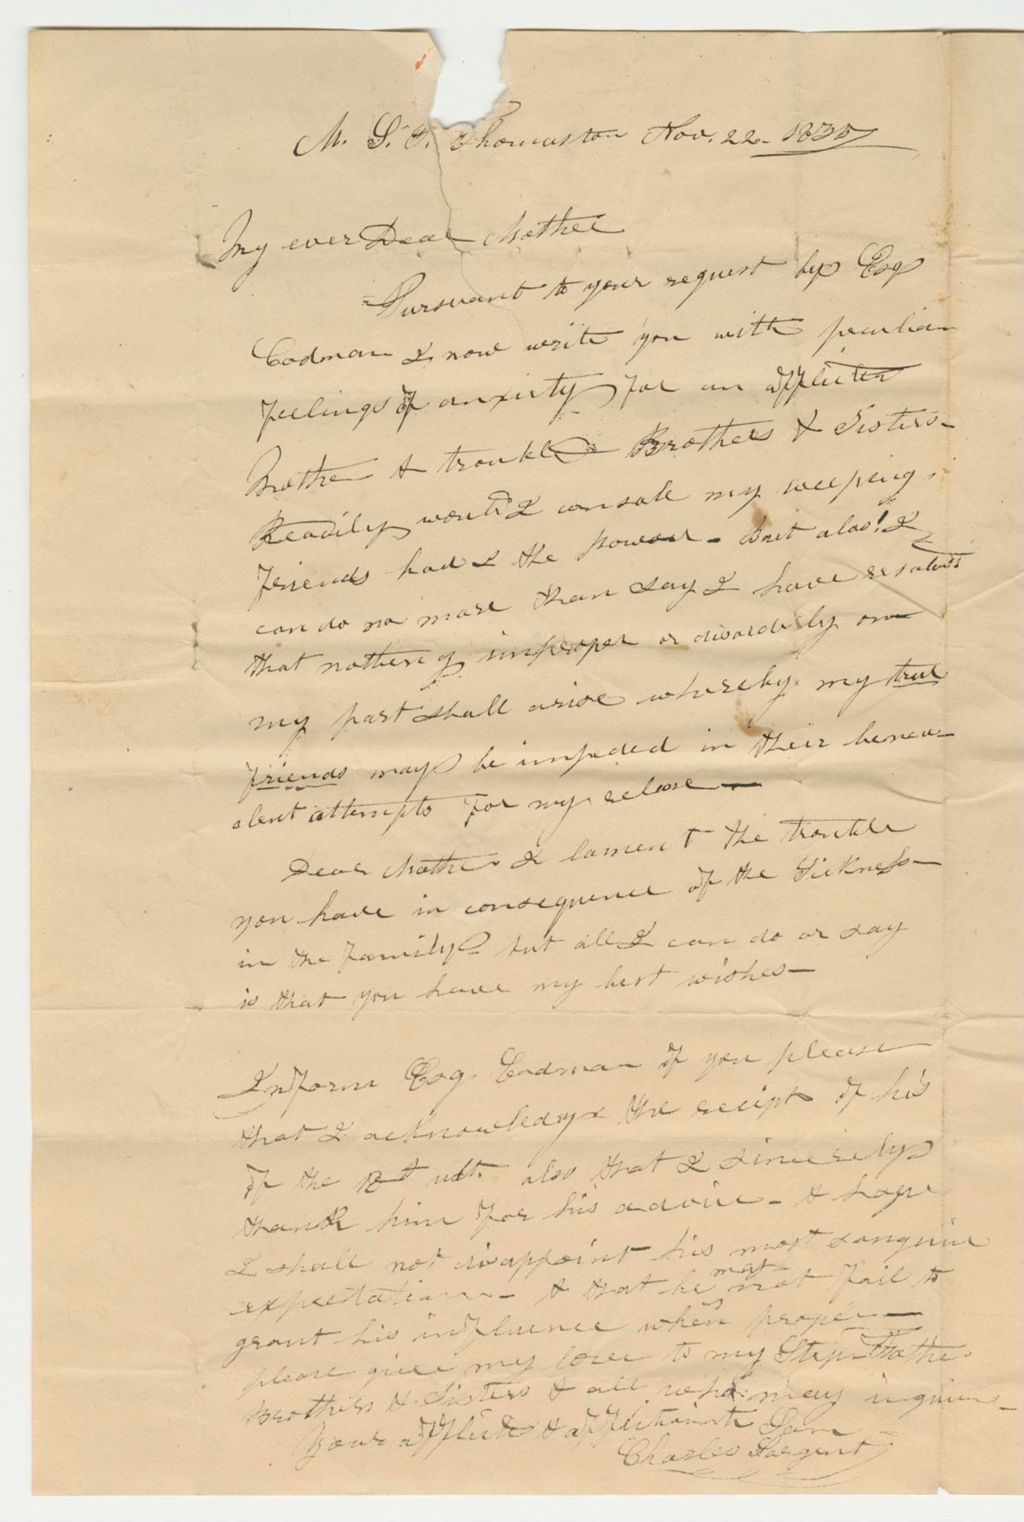 M. S. P. Thomaston Nov. 22. 1835
My ever Dear Mother
Pursuant to your request by Esq
Codman I now write you with peculiar
feelings of anxiety for an afflicted
Mother & troubled Brothers & Sisters-
Readily would I console my weeping
friends had I the power - But alas! I
can do no more than say I have resolved
that nothing improper or disorderly on
my part shall arise whereby my true
friends may be impeded in their benev-
olent attempts for my release -
Dear Mother I lament the trouble
you have in consequence of the Sickness
in the family - but all I can do or say
is that you have my best wishes -
Inform Esq. Codman if you please
that I acknowledge the receipt of his
of the ult. also that I sincerely
thank him for his advice - & hope
I shall not disappoint his most sanguine
expectations - & that he may not fail to
grant his influence when proper -
please give my love to my Step-Father
Brothers & Sisters & all who may inquire -
Your afflicted & affectionate Son
Charles Sargent